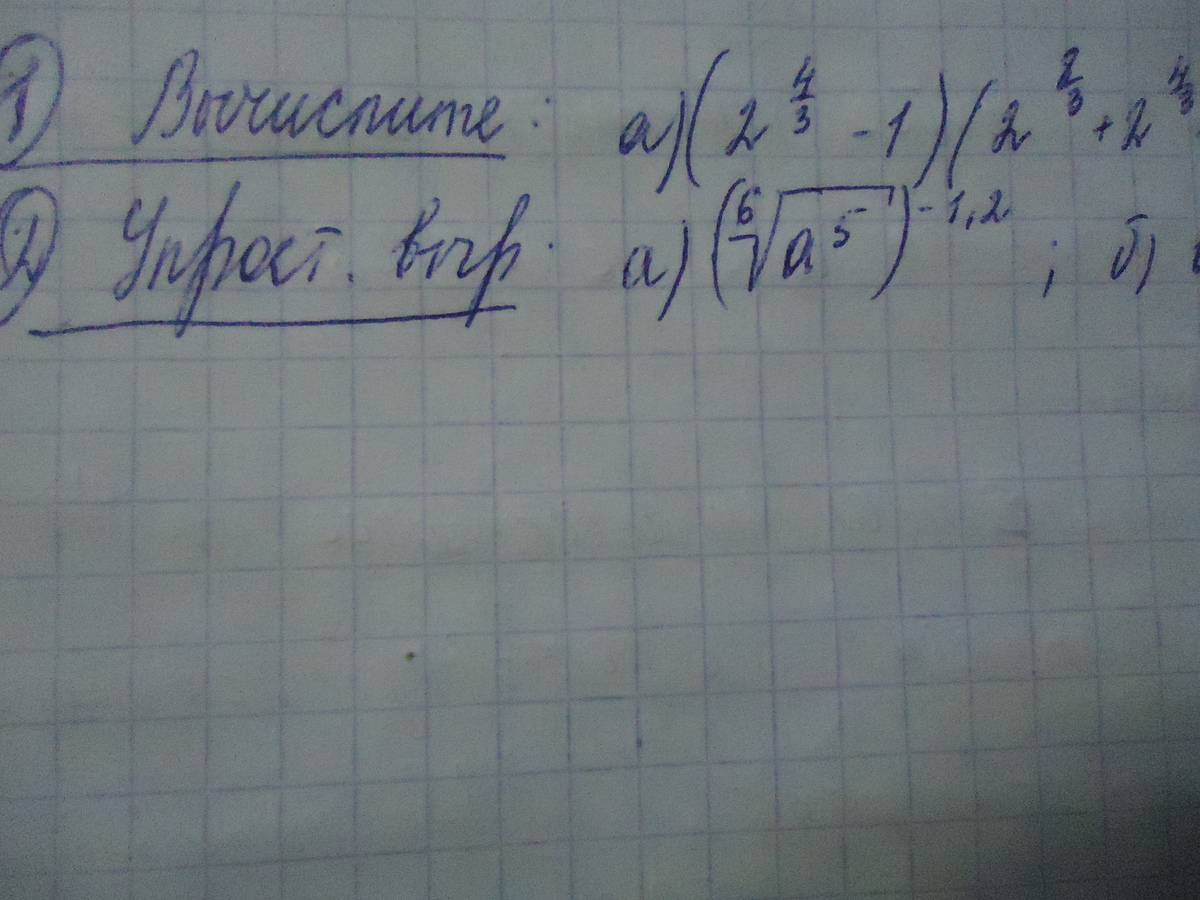 1 Вычислите: а) (2^{4/3} - 1)(2^{2/3} + 2^{4/3}
2 Упрост. выр. а) (⁶√a⁵)^{-1,2} ; б)